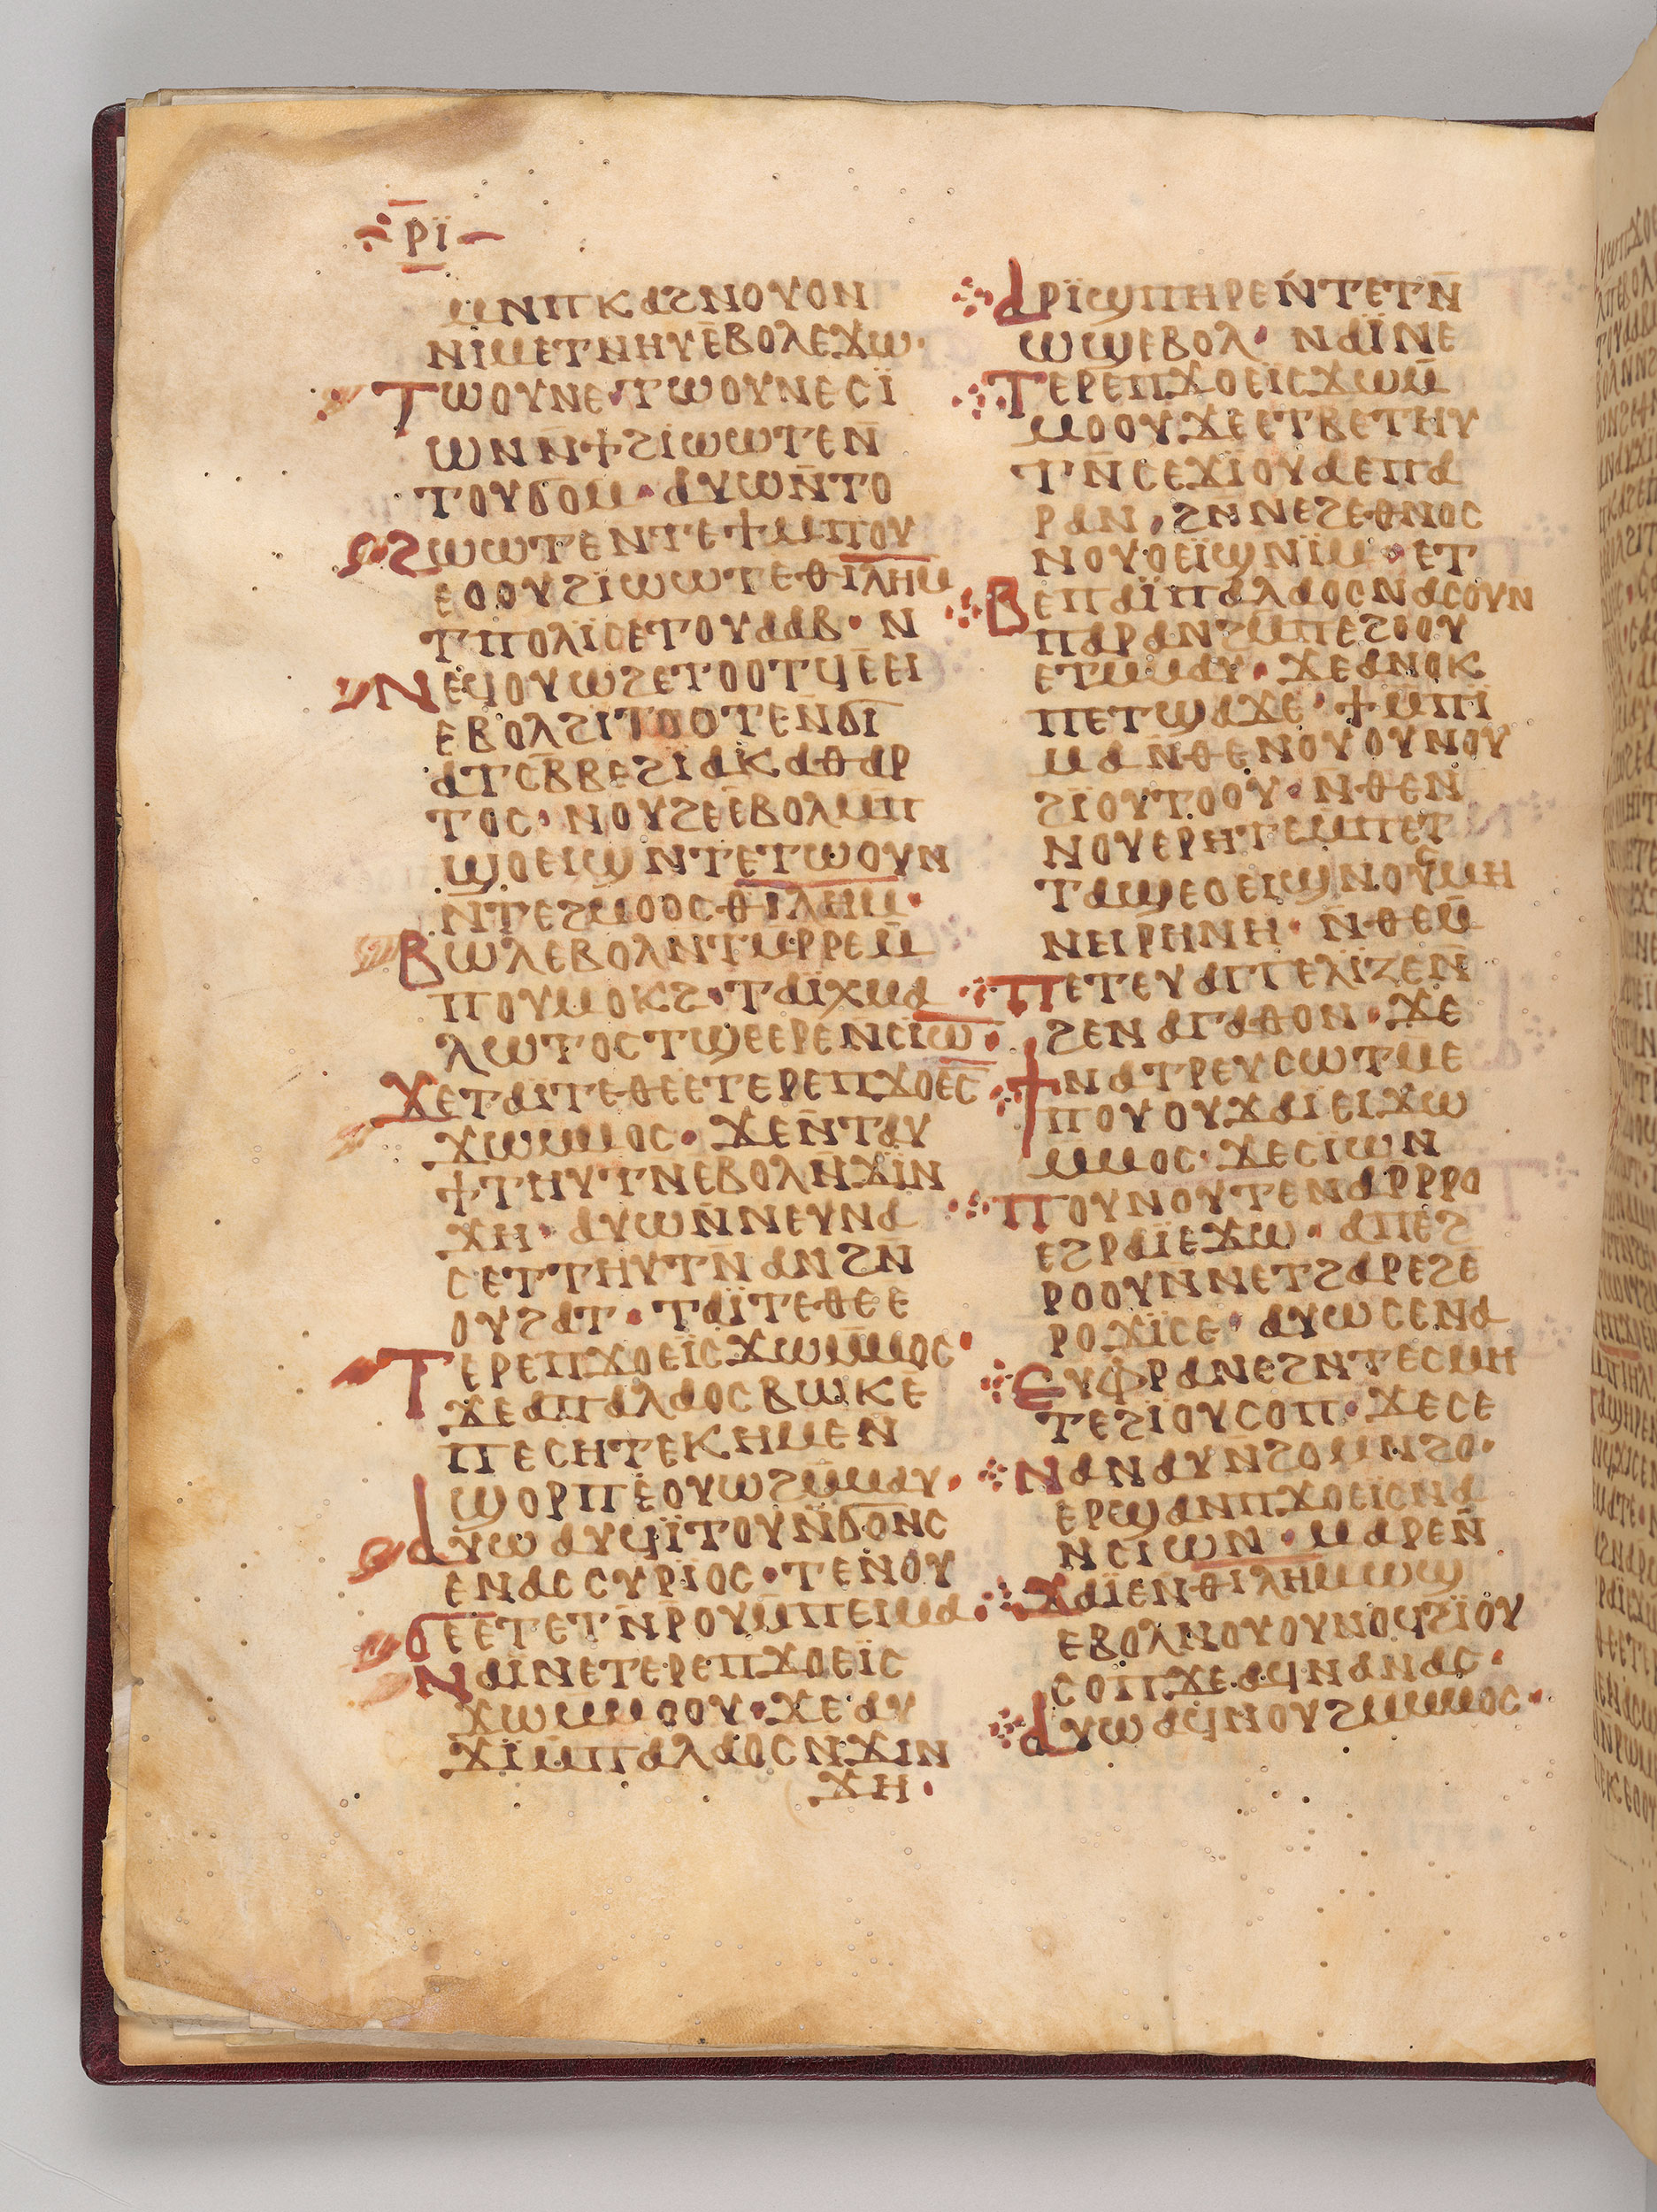 ⲣ̅ⲓ̈
ⲙⲛⲡⲕⲁϩⲛⲟⲩⲟⲛ
ⲛⲓⲙⲉⲧⲛⲏⲩⲉ̄ⲃⲟⲗⲉϫⲱ·
ⲧⲱⲟⲩⲛⲉ·ⲧⲱⲟⲩⲛⲉⲥⲓ̈
ⲱⲛⲛ̄ϯϩⲓⲱⲱⲧⲉⲛ̄
ⲧⲟⲩϭⲟⲙ·ⲁⲩⲱⲛ̄ⲧⲟ
ϩⲱⲱⲧⲉⲛⲧⲉϯⲙⲡⲟⲩ
ⲉⲟⲟⲩϩⲓⲱⲱⲧⲉⲑⲓⲗⲏⲙ
ⲧⲡⲟⲗⲓ̈ⲥⲉⲧⲟⲩⲁⲁⲃ·ⲛ
ⲛⲉϥⲟⲩⲱϩⲉⲧⲟⲟⲧϥⲉ̄ⲉⲓ
ⲉⲃⲟⲗϩⲓⲧⲟⲟⲧⲉⲛ̄ϭⲓ
ⲁⲧⲥⲃ̄ⲃⲉϩⲓⲁⲕⲁⲑⲁⲣ
ⲧⲟⲥ·ⲛⲟⲩϩⲉⲉ̄ⲃⲟⲗⲙ̄ⲡ
ϣⲟⲉⲓϣⲛⲧⲉⲧⲱⲟⲩⲛ
ⲛ̄ⲧⲉϩⲙⲟⲟⲥⲑⲓⲗⲏⲙ·
ⲃⲱⲗⲉⲃⲟⲗⲛⲧⲙ̄ⲣⲣⲉⲙ̄
ⲡⲟⲩⲙⲟⲕϩ·ⲧⲁⲓ̈ⲭⲙⲁ
ⲗⲱⲧⲟⲥⲧϣⲉⲉⲣⲉⲛⲥⲓⲱ̄·
ϫⲉⲧⲁⲓⲧⲉⲑⲉⲉⲧⲉⲣⲉⲡϫⲟⲉⲥ
ϫⲱⲙⲙⲟⲥ·ϫⲉⲛ̄ⲧⲁⲩ
ϯⲧⲏⲩⲧⲛⲉⲃⲟⲗⲛ̄ϫⲓⲛ
ϫⲏ·ⲁⲩⲱⲛ̄ⲛⲉⲩⲛⲁ
ⲥⲉⲧⲧⲏⲩⲧⲛ̄ⲁⲛϩⲛ̄
ⲟⲩϩⲁⲧ·ⲧⲁⲓ̈ⲧⲉⲑⲉⲉ
ⲧⲉⲣⲉⲡϫⲟⲉⲓ̈ⲥϫⲱⲙ̄ⲙⲟⲥ·
ϫⲉⲁⲡⲁⲗⲁⲟⲥⲃⲱⲕⲉ
ⲡⲉⲥⲏⲧⲉⲕⲏⲙⲉⲛ̄
ϣⲟⲣⲡⲉ̄ⲟⲩⲱϩⲙ̄ⲙⲁⲩ·
ⲁⲩⲱⲁⲩϥⲓ̈ⲧⲟⲩⲛ̄ϭⲟⲛⲥ
ⲉⲛⲁⲥⲥⲩⲣⲓⲟⲥ·ⲧⲉⲛⲟⲩ
ϭⲉⲉ̄ⲧⲉⲧⲛ̄ⲣⲟⲩⲙ̄ⲡⲉⲓⲙⲁ·
ⲛⲁⲓ̈ⲛⲉⲧⲉⲣⲉⲡϫⲟⲉⲓ̈ⲥ
ϫⲱⲙⲙⲟⲟⲩ·ϫⲉⲁⲩ
ϫⲓ̈ⲙ̄ⲡⲁⲗⲁⲟⲥⲛϫⲓⲛ
ϫⲏ·
ⲁⲣⲓ̈ϣⲡⲏⲣⲉⲛ̄ⲧⲉⲧⲛ̄
ⲱϣⲉⲃⲟⲗ·ⲛⲁⲓ̈ⲛⲉ
ⲧⲉⲣⲉⲡϫⲟⲉⲓ̈ⲥϫⲱⲙ̄
ⲙⲟⲟⲩϫⲉⲉⲧⲃⲉⲧⲏⲩ
ⲧⲛ̄ⲥⲉϫⲓ̈ⲟⲩⲁⲉⲡⲁ
ⲣⲁⲛ,ϩⲛ̄ⲛⲉϩⲉⲑⲛⲟⲥ
ⲛⲟⲩⲟⲉⲓ̈ϣⲛⲓ̈ⲙ·ⲉⲧ
ⲃⲉⲡⲁⲓ̈ⲡⲁⲗⲁⲟⲥⲛⲁⲥⲟⲩⲛ
ⲡⲁⲣⲁⲛϩⲙⲡⲉϩⲟⲟⲩ
ⲉⲧⲙⲙⲁⲩ·ϫⲉⲁⲛⲟⲕ
ⲡⲉⲧϣⲁϫⲉ·ϯⲙ̄ⲡⲓ
ⲙⲁⲛ̄ⲑⲉⲛⲟⲩⲟⲩⲛⲟⲩ
ϩⲓ̈ⲟⲩⲧⲟⲟⲩ·ⲛⲑⲉⲛ̄
ⲛⲟⲩⲉⲣⲏⲧⲉⲙ̄ⲡⲉⲧ
ⲧⲁϣⲉⲟⲉⲓϣⲛⲟⲩⲥⲙⲏ
ⲛⲉⲓⲣⲏⲛⲏ·ⲛ̄ⲑⲉⲙ̄
ⲡⲉⲧⲉⲩⲁⲅⲅⲉⲗⲓ̈ⲍⲉⲛ̄
ϩⲉⲛⲁⲅⲁⲑⲟⲛ·ϫⲉ
ϯⲛⲁⲧⲣⲉⲩⲥⲱⲧⲙⲉ
ⲡⲟⲩⲟⲩϫⲁⲓⲉⲓϫⲱ
ⲙⲙⲟⲥ·ϫⲉⲥⲓ̈ⲱⲛ
ⲡⲟⲩⲛⲟⲩⲧⲉⲛⲁⲣⲣⲣⲟ
ⲉϩⲣⲁⲓ̈ⲉϫⲱ·ⲁⲡⲉϩ
ⲣⲟⲟⲩⲛⲛⲉⲧϩⲁⲣⲉϩⲉ̄
ⲣⲟϫⲓ̈ⲥⲉ·ⲁⲩⲱⲥⲉⲛⲁ
ⲉⲩⲫⲣⲁⲛⲉϩⲛⲧⲉⲥⲙⲏ
ⲧⲉϩⲓ̈ⲟⲩⲥⲟⲡ·ϫⲉⲥⲉ
ⲛⲁⲛⲁⲩⲛ̄ϩⲟⲙⲛϩⲟ·
ⲉⲣϣⲁⲛⲡϫⲟⲉⲓ̈ⲥⲛⲁ
ⲛⲥⲓⲱⲛ·ⲙⲁⲣⲉⲛ̄
ϫⲁⲓ̈ⲉⲛⲑⲓⲗⲏⲙⲱϣ
ⲉⲃⲟⲗⲛⲟⲩⲟⲩⲛⲟϥϩⲓ̈ⲟⲩ
ⲥⲟⲡϫⲉⲁϥⲛⲁⲛⲁⲥ·
ⲁⲩⲱⲁϥⲛⲟⲩϩⲙⲙⲙⲟⲥ·